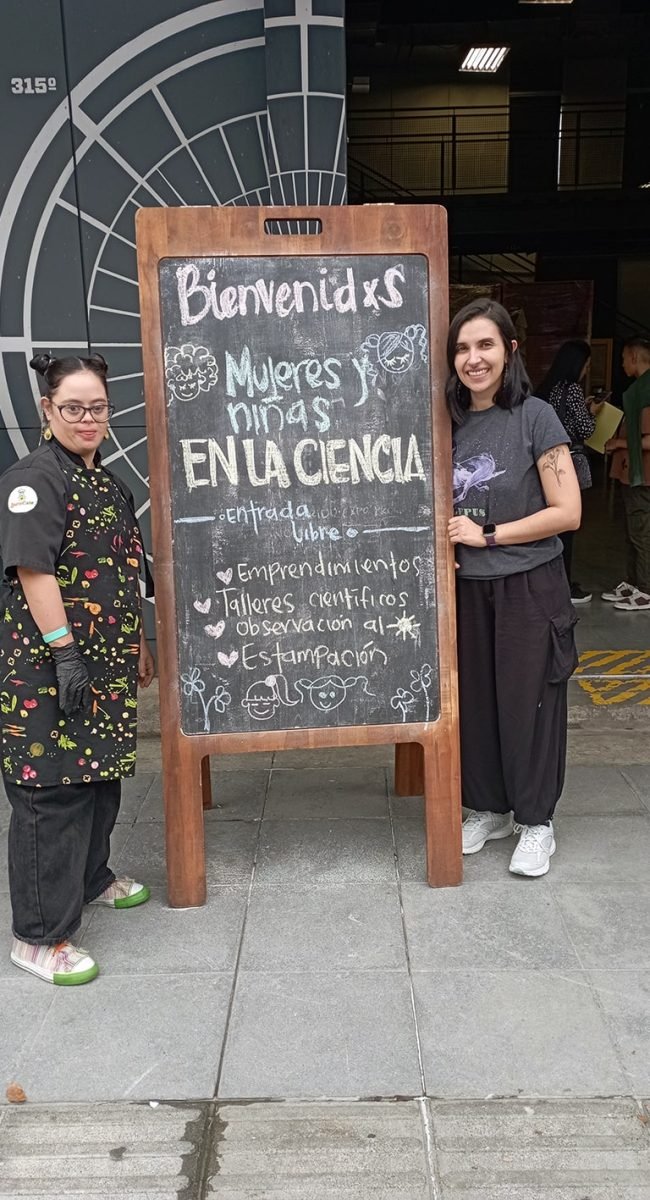 315º
Bienvenidxs
Mujeres y
niñas
EN LA CIENCIA
Entrada
libre
Emprendimientos
Talleres científicos
observación al
Estampación